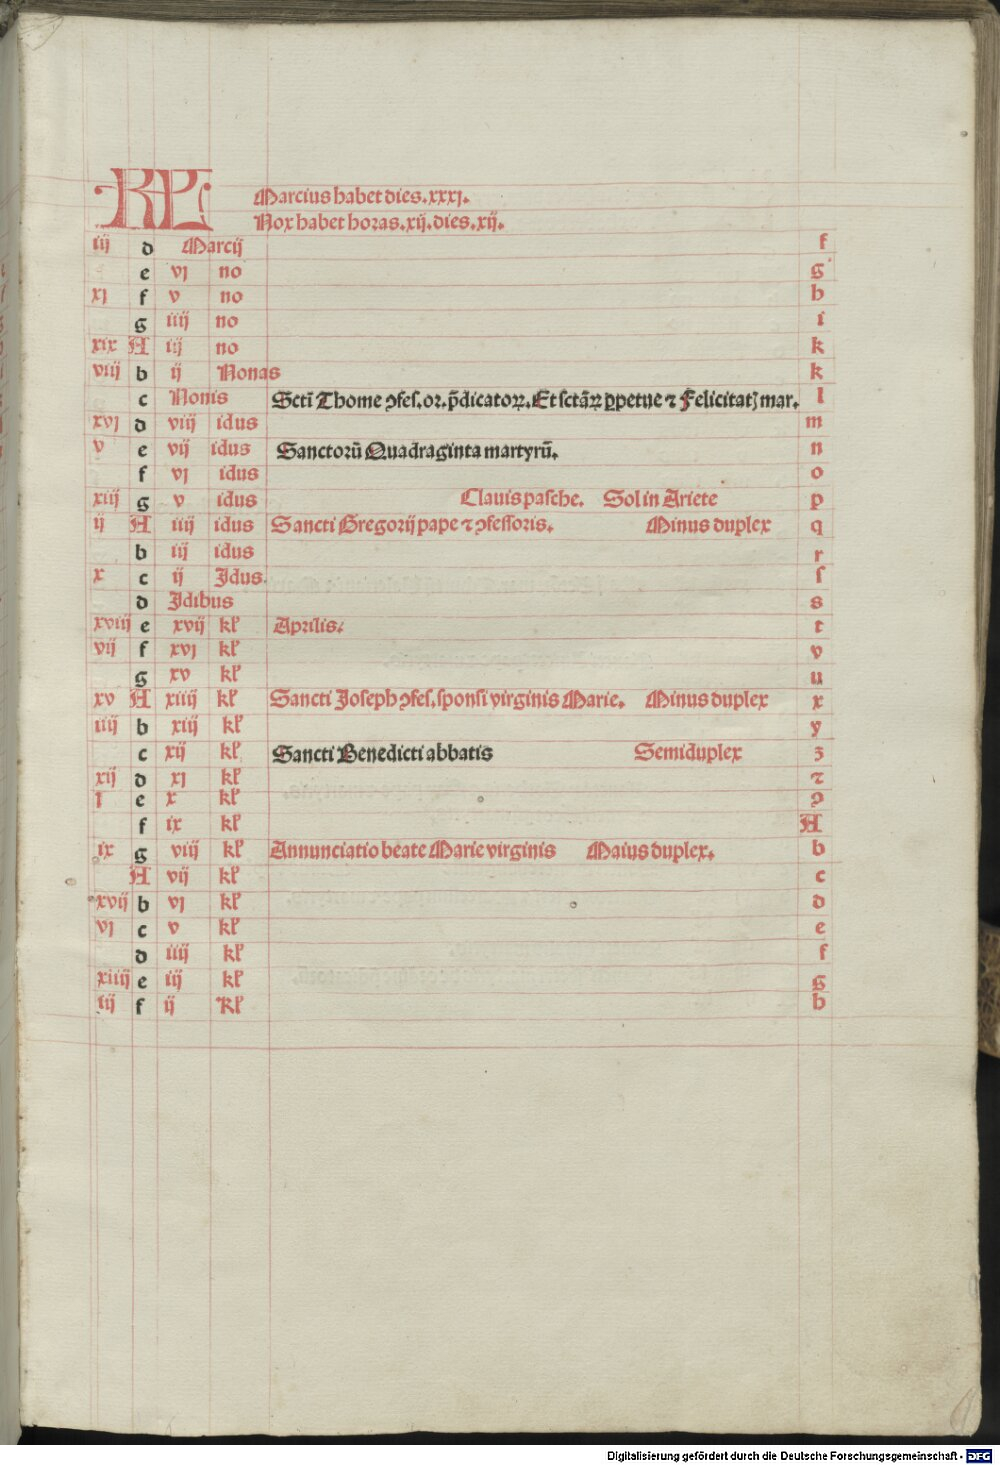 KL Marcius habet dies.xxxj.
Nox habet horas.xij.dies.xij.
iij d Marcij f
e vj no g
xj f v no h
g iiij no i
xix A iij no k
viij b ij Nonas k
c Nonis Scti Thome ɔfes.or.p̄dicatoꝝ.Et sctāꝝ ꝑpetue ⁊ Felicitatꝭ mar. l
xvj d viij idus m
v e vij idus Sanctorū Quadraginta martyrū. n
f vj idus o
xiij g v idus Clauis pasche. Sol in Ariete p
ij A iiij idus Sancti Gregorij pape ⁊ ɔfessoris. Minus duplex q
b iij idus r
x c ij Jdus ſ
d Jdibus s
xviij e xvij kl Aprilis. t
vij f xvj kl v
g xv kl u
xv A xiiij kl Sancti Joseph ɔfes.sponsi virginis Marie. Minus duplex x
iiij b xiij kl y
c xij kl Sancti Benedicti abbatis Semiduplex z
xij d xj kl ⁊
j e x kl ɔ
f ix kl A
ix g viij kl Annunciatio beate Marie virginis Maius duplex. b
A vij kl c
xvij b vj kl d
vj c v kl e
d iiij kl f
xiiij e iij kl g
iij f ij Kl h
Digitalisierung gefördert durch die Deutsche Forschungsgemeinschaft - DFG